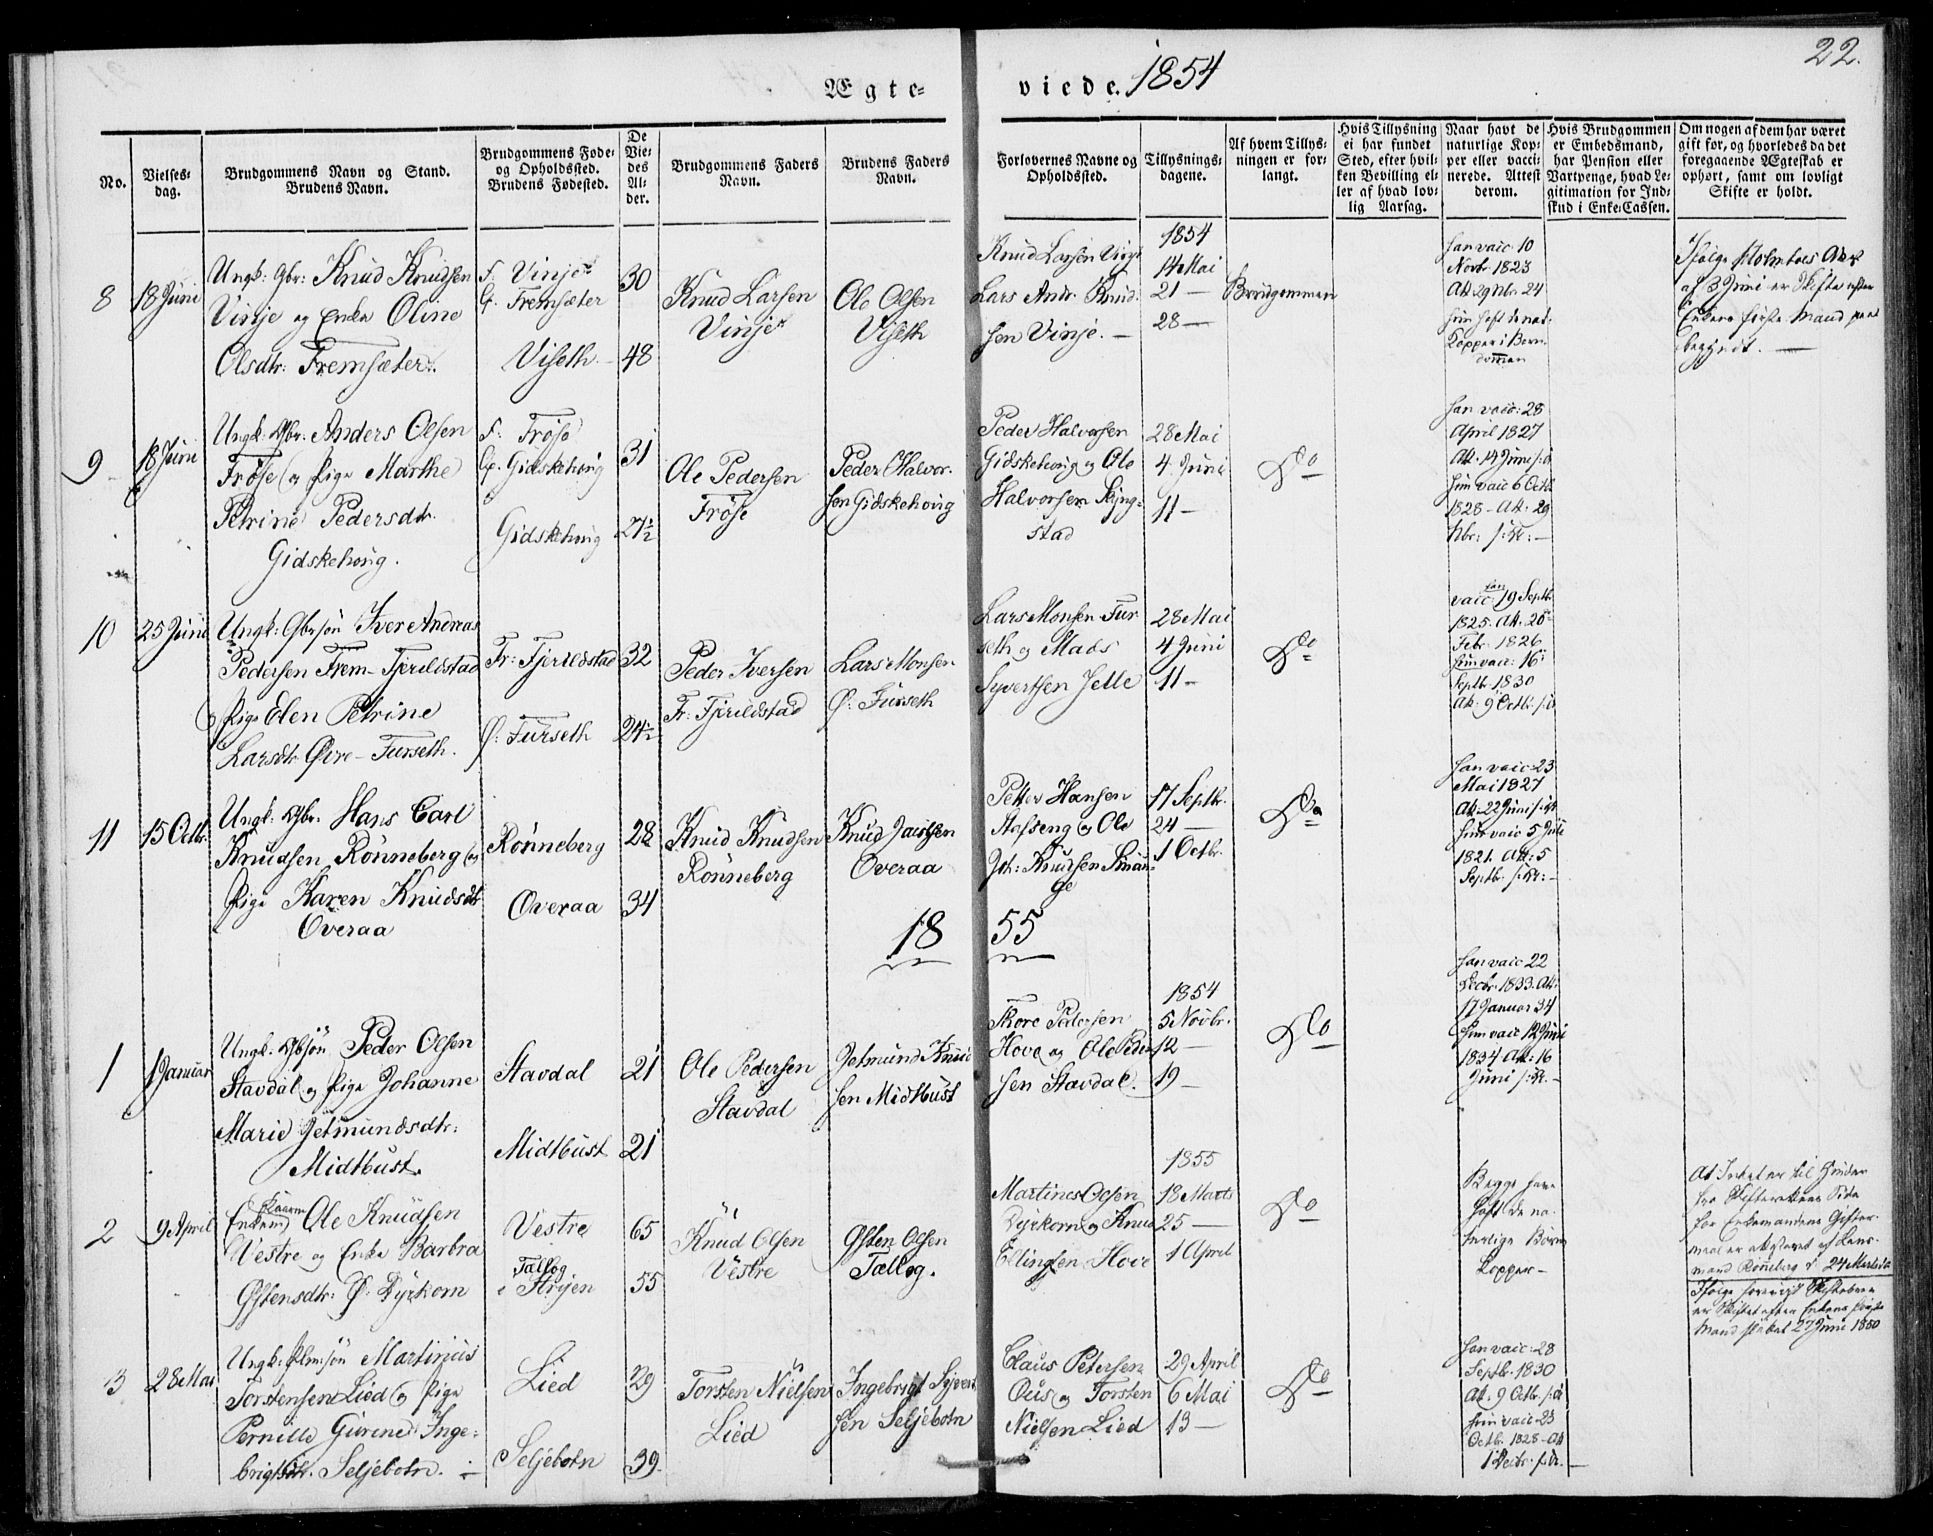 22.
Ægte-
viede. 1854
No.
Vielses-
dag.
Brudgommens Navn og Stand.
Brudens Navn.
Brudgommens Føde-
og Opholdssted.
Brudens Fødested.
De
Vie-
des
Al-
der.
Brudgommens Faders
Navn.
Brudens Faders
Navn.
Forlovernes Navne og
Opholdssted.
Tillysnings-
dagene.
Af hvem Tillys-
ningen er for-
langt.
Hvis Tillysning
ei har fundet
Sted, efter hvil-
ken Bevilling el-
ler af hvad lov-
lig Aarsag.
Naar havt de
naturlige Kop-
per eller vacci-
nerede. Attest
derom.
Hvis Brudgommen
er Embedsmand,
har Pension eller
Vartpenge, hvad Le-
gitimation for Ind-
skud i Enke-Cassen.
Om nogen af dem har været
gift før, og hvorledes da det
foregaaende Ægteskab er
ophørt, samt om lovligt
Skifte er holdt.
8
18 Juni
Ungk: Gbr: Knud Knudsen
Vinje og Enke Oline
Olsdtr: Fremsæter.
F. Vinje
G. Fremsæter
Viseth.
30
48
Knud Larsen
Vinje
Ole Olsen
Viseth
Knud Larsen
Lars Andr. Knud-
sen Vinje. —
1854
14 Mai
21 —
28 —
Brudgommen
han vacc. 10
Novbr. 1823
Att. 29 Nbr. 24
hun haft de nat.
Kopper i Barn-
dommen
Ifølge
af 3 Juni er Skifte efter
Enkens første Mand paa-
begyndt. —
9
18 Juni
Ungk: Gbr. Anders Olsen
Frøse og Pige Marthe
Petrine Pedersdtr.
Gidskehoug.
F. Frøse
G. Gidskehoug
Gidskehoug
31
27½
Ole Pedersen
Frøse
Peder Halvor-
sen Gidskehoug
Peder Halvorsen
Gidskehoug og Ole
Halvorsen
stad
28 Mai
4 Juni
11 —
Do
han vacc: 28
April 1827
Att. 14 Juni s. A.
hun vacc 6 Octb
1828 - Att. 29
Nbr: s: A: —
10
25 Juni
Ungk: Gbrsøn Iver Andreas
Pedersen Frem-Fjeildstad
Pige Elen Petrine
Larsdtr Øvre-Furseth.
Fr: Fjeildstad
Ø: Furseth
32
24½
Peder Iversen
Fr: Fjeildstad
Lars Monsen
Ø: Furseth
Lars Monsen Fur-
seth og Mads
Syvertsen Helle
28 Mai
4 Juni
11 —
Do
han
vacc: 19 Septb.
1825. Att. 25
Febr. 1826
hun vacc: 16
Septbr 1830
Att. 9 Octbr. s: A
11
15 Octbr.
Ungk: Gbr. Hans Carl
Knudsen Rønneberg og
Pige Karen Knudsdtr
Overaa
Rønneberg
Overaa
28
34
Knud Knudsen
Rønneberg
Knud Jacobsen
Overaa
Petter Hansen
Stafseng og Ole
Joh: Knudsen
ge
17 Septbr.
24 —
1 Octbr.
Do
han vacc. 23
Mai 1827
Att. 22 Juni s: A
hun vacc 5 Juli
1821. Att: 5
Septbr. s: A: —
18 55
1
1 Januar
Ungk: Gbsøn Peder Olsen
Stavdal og Pige Johanne
Marie Jetmundsdtr:
Midtbust.
Stavdal
Midtbust
21
21
Ole Pedersen
Stavdal
Jetmund Knud-
sen Midtbust
Thore Pedersen
Hove og Ole Peder-
sen Stavdal.
1854
5 Novbr.
12 —
19 —
Do
han vacc 22
Decbr. 1833. Att.
17 Januar 34
hun vacc 12 Juni
1834 Att: 16
Juni s: A. —
2
9 April
Enkem. Ole Knudsen
Vestre og Enke Barbra
Østensdtr: Ø: Dyrkorn
Vestre
Tallog
i Stryen
65
55
Knud Olsen
Vestre
Østen Olsen
Tallog.
Martines Olsen
Dyrkorn og Knud
Ellingsen Hove
1855
18 Marts
25 —
1 April
Do
Begge have
haft de na-
turlige Børne-
kopper —
At Intet er til Hinder
fra Skifterettens Side
for Enkemandens Gifter-
maal er attesteret af Lens-
mand Rønneberg d. 24 Marts
Ifølge
er Skiftet efter Enkens første
Mand sluttet 27 Juni 1850
3
28 Mai
Ungk: Plmsøn Martinus
Torstensen Lied og Pige
Pernille Gurine Inge-
brigtsdtr. Seljebotn. —
Lied
Seljebotn
29
39.
Torsten Nielsen
Lied
Ingebrigt Syvert-
sen Seljebotn
Claus Petersen
Ous og Torsten
Nielsen Lied
29 April
6 Mai
13 —
Do
han vacc: 28
Septbr. 1830
Att. 9 Octbr. s: A
hun vacc 23
Octbr. 1828 - Att
1 Decbr. s: A. —